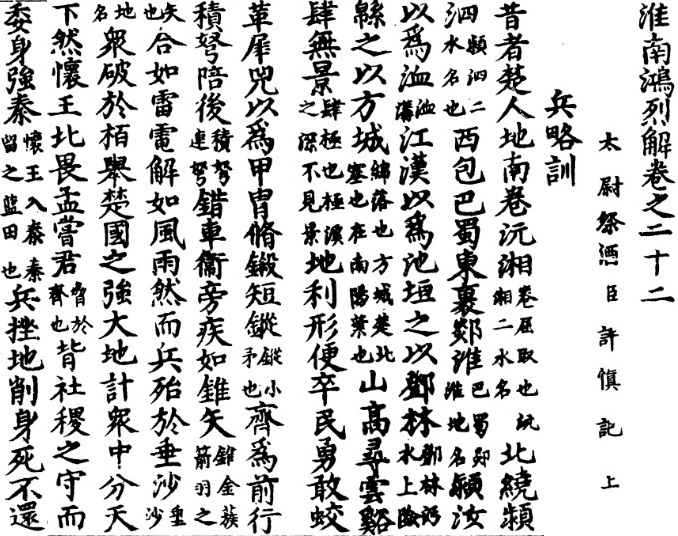 淮南鴻烈解卷之二十二
太尉祭酒臣許慎記上
兵略訓
昔者楚人地南卷沅湘卷屈取也沅湘二水名北繞潁
泗潁泗二水名也西包巴蜀東裹郯淮巴蜀郯淮地名潁汝
以為洫洫溝江漢以為池垣之以鄧林鄧林沔水上險
緜之以方城綿落也方城楚北塞也在南陽葉也山高尋雲谿
肆無景肆極也極溪之深不見景地利形便卒民勇敢蛟
革犀兕以為甲冑脩鍛短鏦鏦小矛也齊為前行
積弩陪後積弩連弩錯車衞旁疾如錐矢錐金蔟箭羽之
矢也合如雷電解如風雨然而兵殆於垂沙垂沙
地名眾破於栢舉楚國之強大地計眾中分天
下然懷王北畏孟嘗君脅於齊也背社稷之守而
委身強秦懷王入秦秦留之藍田也兵挫地削身死不還